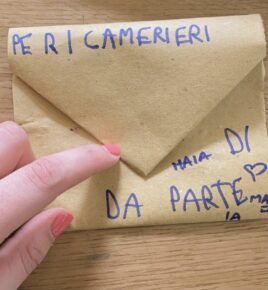 PE R I CAMERIERI
DI
MAIA
DA PARTE
MA
IA